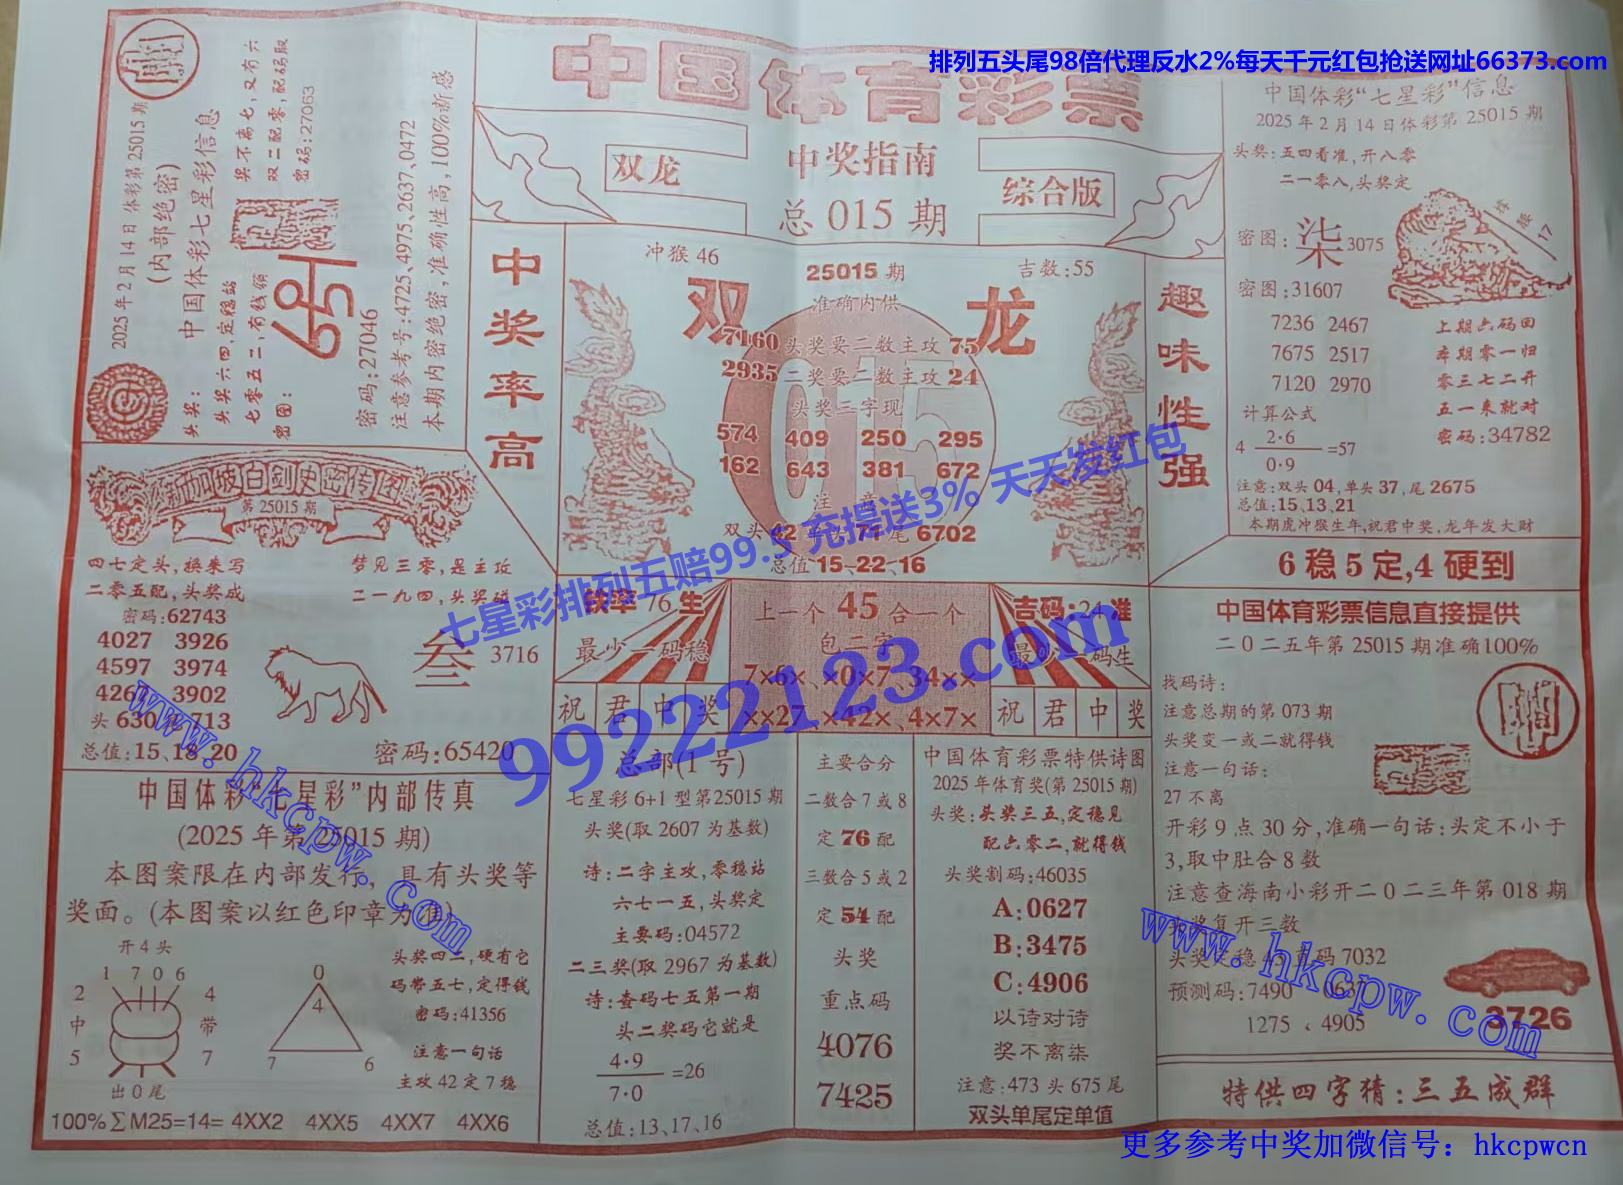 排列五头尾98倍代理反水2%每天千元红包抢送网址66373.com
中国体育彩票
双龙
中奖指南
综合版
总 015 期
2025年2月14日体彩第25015期
(内部绝密)
中国体彩七星彩信息
头奖:
头奖六四,定稳站
七零五二,有钱领
奖不离七,又有六
双二配零,配码取
密码:27063
密图:
密码:27046
注意参考号:4725、4975、2637、0472
本期内密绝密,准确性高,100%新感
中奖率高
冲猴 46
25015 期
吉数:55
准确内供
双
龙
7160 头奖要二数主攻 75
2935 二奖要二数主攻 24
头奖三字现
574 409 250 295
162 643 381 672
注 意
双头 42 单 71 尾 6702
总值 15、22、16
趣味性强
中国体彩“七星彩”信息
2025年2月14日体彩第25015期
头奖:五四看准,开八零
二一零八,头奖定
密图: 柒 3075
密图:31607
7236 2467
7675 2517
7120 2970
上期六码回
本期零一归
零三七二开
五一来就对
密码:34782
计算公式
4 2·6 =57
0·9
注意:双头 04,单头 37,尾 2675
总值:15、13、21
本期虎冲猴生年,祝君中奖,龙年发大财
6 稳 5 定,4 硬到
新加坡白剑史密传图
第 25015 期
四七定头,换来写
二零五配,头奖成
梦见三零,是主攻
二一九四,头奖
密码:62743
4027 3926
4597 3974
4267 3902
头 630 713
总值:15、18、20
叁 3716
密码:65420
铁率 76 生
最少一码稳
上一个 45 合一个
包二字
7×6×、×0×7、34××
××27、×42×、4×7×
吉码:24 准
最少一码生
祝君中奖
祝君中奖
七星彩排列五赔99.5 充提送3% 天天发红包
99222123.com
中国体彩“七星彩”内部传真
(2025 年第 25015 期)
本图案限在内部发行,具有头奖等
奖面。(本图案以红色印章为准)
开 4 头
1 7 0 6
2 中 5
4 带 7
出 0 尾
0
4
7 6
头奖四二,硬有它
码带五七,定得钱
密码:41356
注意一句话
主攻 42 定 7 稳
100%∑M25=14= 4XX2 4XX5 4XX7 4XX6
总部(1 号)
七星彩 6+1 型第 25015 期
头奖(取 2607 为基数)
诗:二字主攻,零稳站
六七一五,头奖定
主要码:04572
二三奖(取 2967 为基数)
诗:查码七五第一期
头二奖码它就是
4·9 =26
7·0
总值:13、17、16
主要合分
二数合 7 或 8
定 76 配
三数合 5 或 2
定 54 配
头奖
重点码
4076
7425
中国体育彩票特供诗图
2025 年体育奖(第 25015 期)
头奖:头奖三五,定稳见
配六零二,就得钱
头奖割码:46035
A:0627
B:3475
C:4906
以诗对诗
奖不离柒
注意:473 头 675 尾
双头单尾定单值
中国体育彩票信息直接提供
二○二五年第 25015 期准确100%
找码诗:
注意总期的第 073 期
头奖变一或二就得钱
注意一句话:
27 不离
开彩 9 点 30 分,准确一句话:头定不小于
3,取中肚合 8 数
注意查海南小彩开二○二三年第 018 期
头奖复开三数
头奖定稳 45 重码 7032
预测码:7490 0637
1275 、4905
3726
特供四字猜:三五成群
www.hkcpw.com
www.hkcpw.com
更多参考中奖加微信号:hkcpwcn